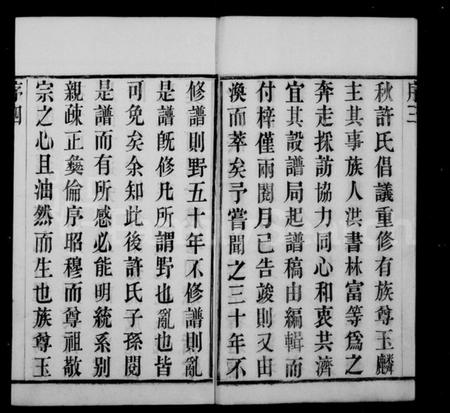 序三
秋許氏倡議重修有族尊玉麟
主其事族人洪書林富等爲之
奔走採訪協力同心和衷共濟
宜其設譜局起譜稿由編輯而
付梓僅兩閱月已告竣則又由
渙而萃矣予嘗聞之三十年不
修譜則野五十年不修譜則亂
是譜旣修凡所謂野也亂也皆
可免矣余知此後許氏子孫閱
是譜而有所感必能明統系别
親疎正彝倫序昭穆而尊祖敬
宗之心且油然而生也族尊玉
序四